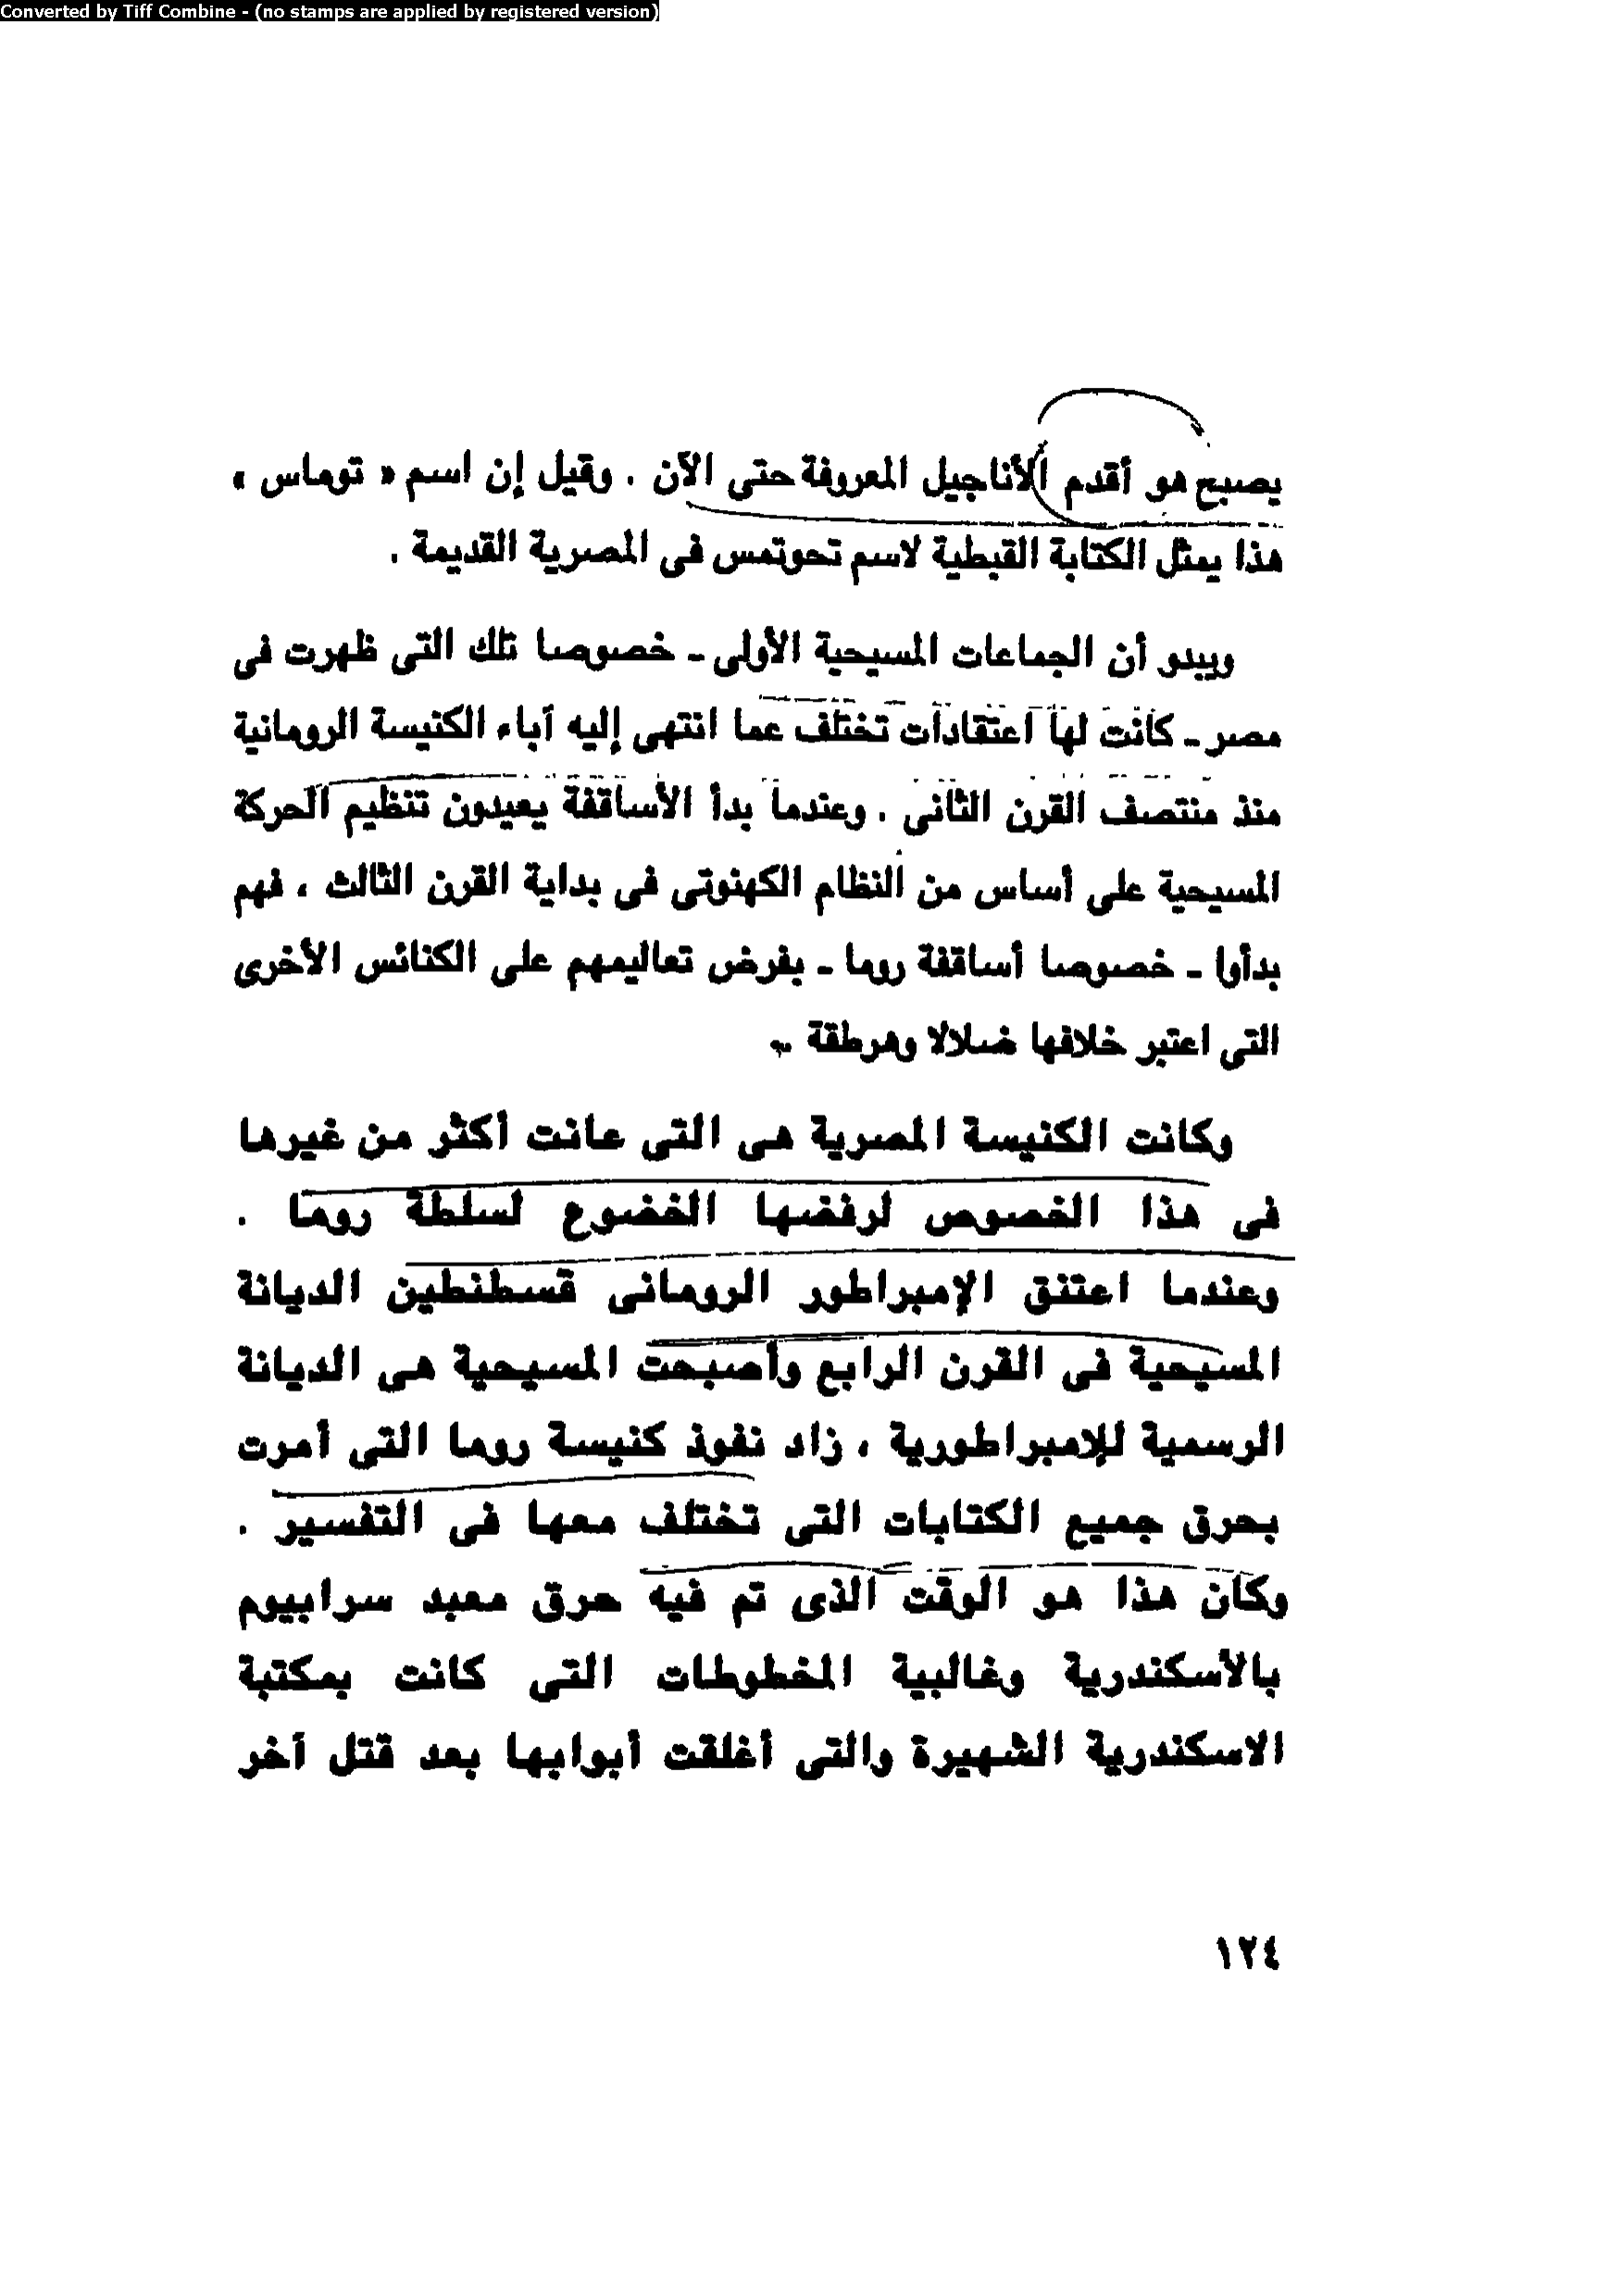 Converted by Tiff Combine - (no stamps are applied by registered version)
يصبح هو أقدم الأناجيل المعروفة حتى الآن . وقيل إن اسم « توماس »
هذا يمثل الكتابة القبطية لاسم تحوتمس فى المصرية القديمة .
ويبدو أن الجماعات المسيحية الأولى - خصوصا تلك التى ظهرت فى
مصر - كانت لها اعتقادات تختلف عما انتهى إليه آباء الكنيسة الرومانية
منذ منتصف القرن الثانى . وعندما بدأ الأساقفة يعيدون تنظيم الحركة
المسيحية على أساس من النظام الكهنوتى فى بداية القرن الثالث ، فهم
بدأوا - خصوصا أساقفة روما - بفرض تعاليمهم على الكنائس الأخرى
التى اعتبر خلافها ضلالا وهرطقة .
وكانت الكنيسة المصرية هى التى عانت أكثر من غيرها
فى هذا الخصوص لرفضها الخضوع لسلطة روما .
وعندما اعتنق الإمبراطور الرومانى قسطنطين الديانة
المسيحية فى القرن الرابع وأصبحت المسيحية هى الديانة
الرسمية للإمبراطورية ، زاد نفوذ كنيسة روما التى أمرت
بحرق جميع الكتابات التى تختلف معها فى التفسير .
وكان هذا هو الوقت الذى تم فيه حرق معبد سرابيوم
بالأسكندرية وغالبية المخطوطات التى كانت بمكتبة
الاسكندرية الشهيرة والتى أغلقت أبوابها بعد قتل آخر
١٢٤